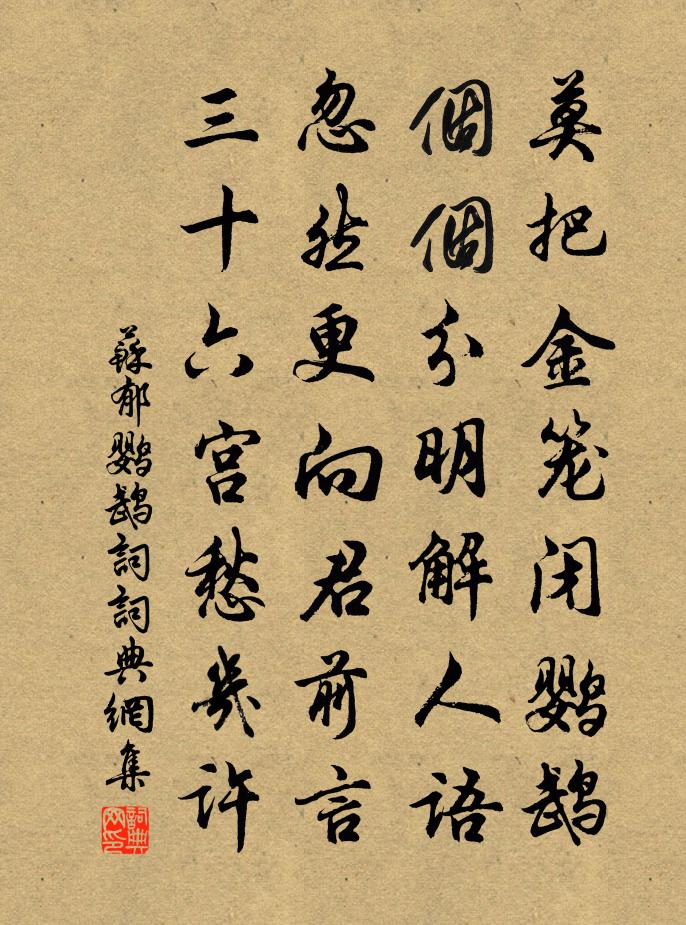 莫把金笼闭鹦鹉
個個分明解人语
忽然更向君前言
三十六宫愁幾许
蘇郁鹦鹉詞詞典網集
詞典网印